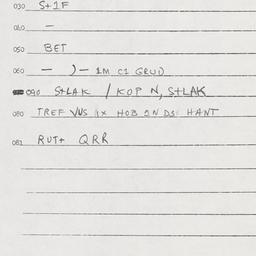 030 S+1F
040 —
050 BET
060 — )— 1M C1 GRUD
090 S+LAK / KOP N, S+LAK
080 TREF VVS 1X HOB ON DS HANT
081 RUT+ QRR